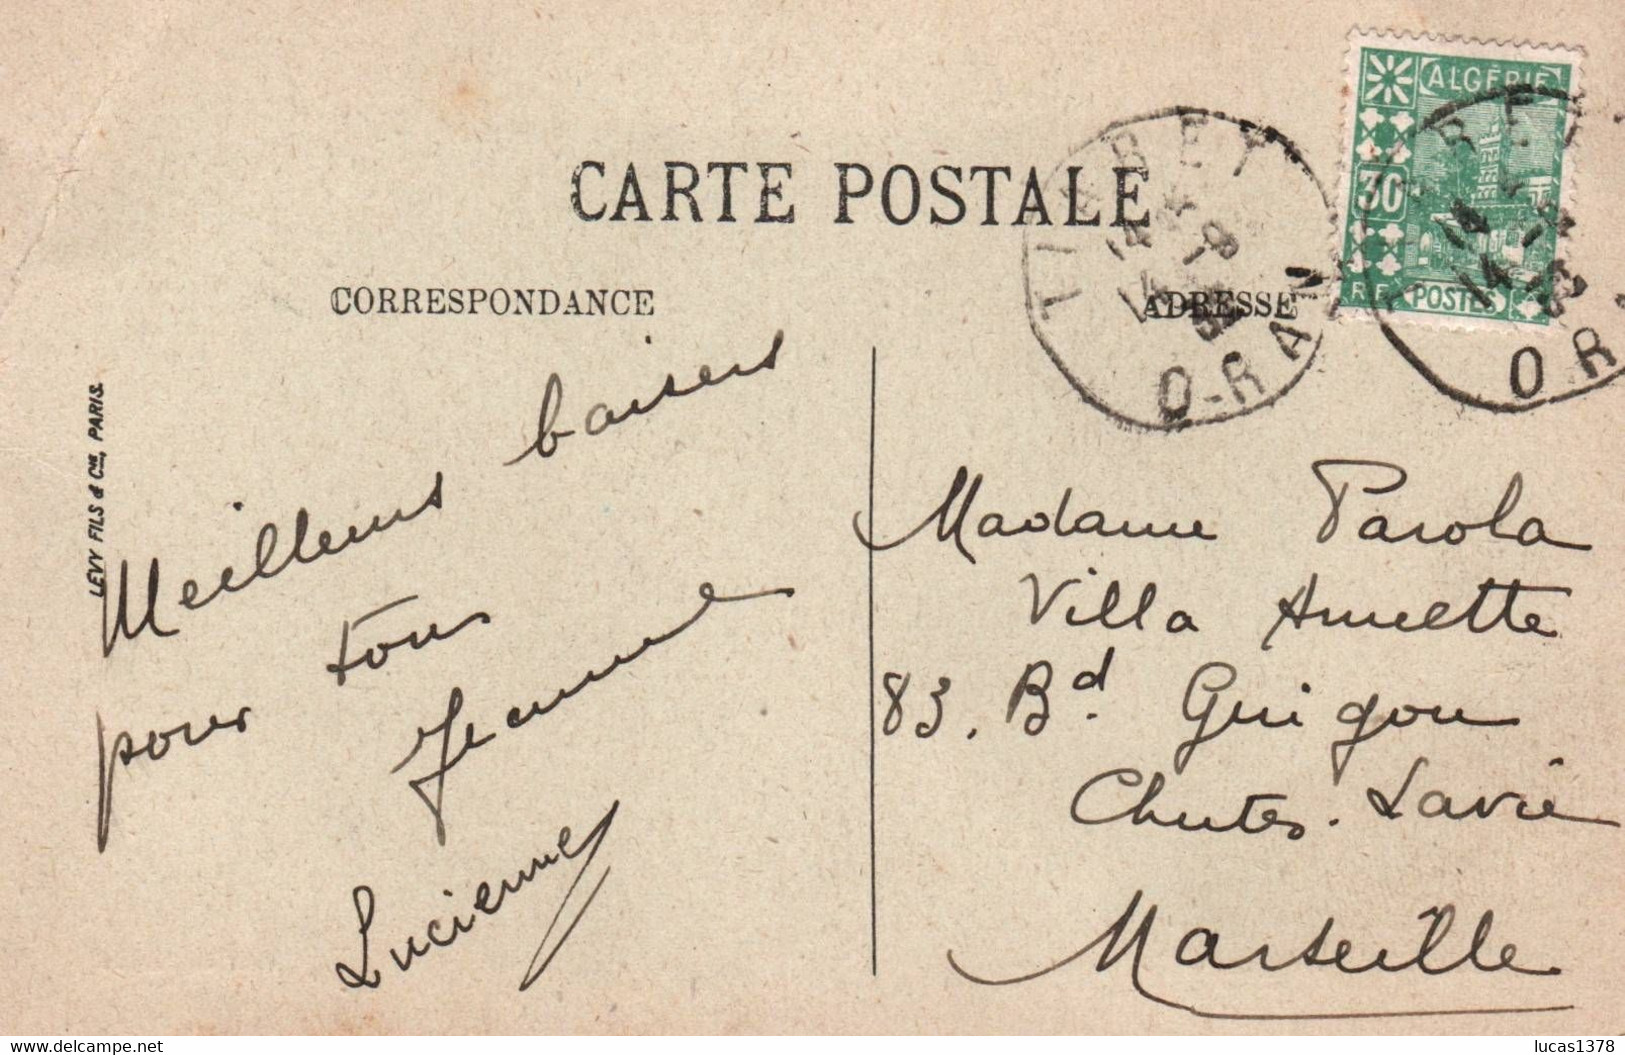 CARTE POSTALE
CORRESPONDANCE
ADRESSE
ALGÉRIE
30
RF POSTES
TIARET
ORAN
ORA
LEVY FILS & Cie, PARIS.
Meilleurs baisers
pour tous
Jeanne
Lucienne
Madame Parola
Villa Annette
83. Bd. Guigou
Chutes. Lavie
Marseille
www.delcampe.net
lucas1378